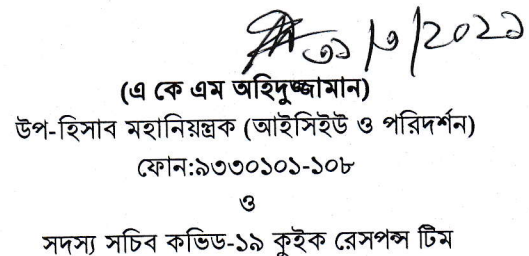 ৩১/৩/2021
(এ কে এম অহিদুজ্জামান)
উপ-হিসাব মহানিয়ন্ত্রক (আইসিইউ ও পরিদর্শন)
ফোন:৯৩৩০১০১-১০৮
ও
সদস্য সচিব কভিড-১৯ কুইক রেসপন্স টিম